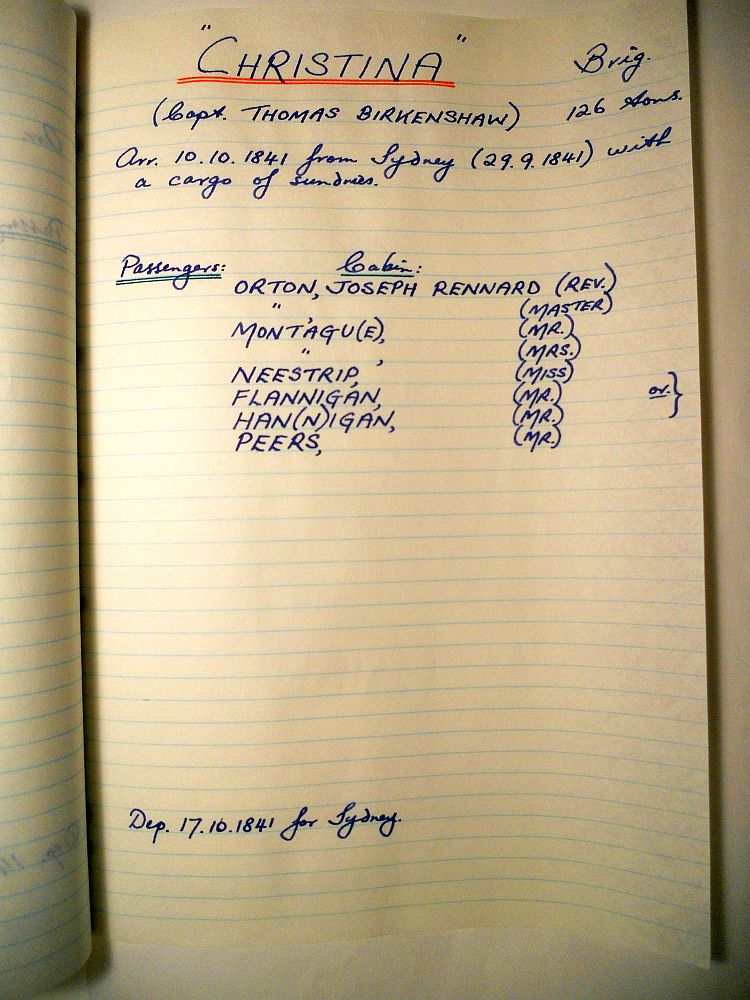 "CHRISTINA" Brig.
(Capt. THOMAS BIRKENSHAW) 126 tons.
Arr. 10.10.1841 from Sydney (29.9.1841) with
a cargo of sundries.
Passengers: Cabin:
ORTON, JOSEPH RENNARD (REV.)
" , (MASTER)
MONTAGU(E), (MR.)
" , (MRS.)
NEESTRIP, (MISS)
FLANNIGAN, (MR.) or }
HAN(N)IGAN, (MR.)
PEERS, (MR.)
Dep. 17.10.1841 for Sydney.